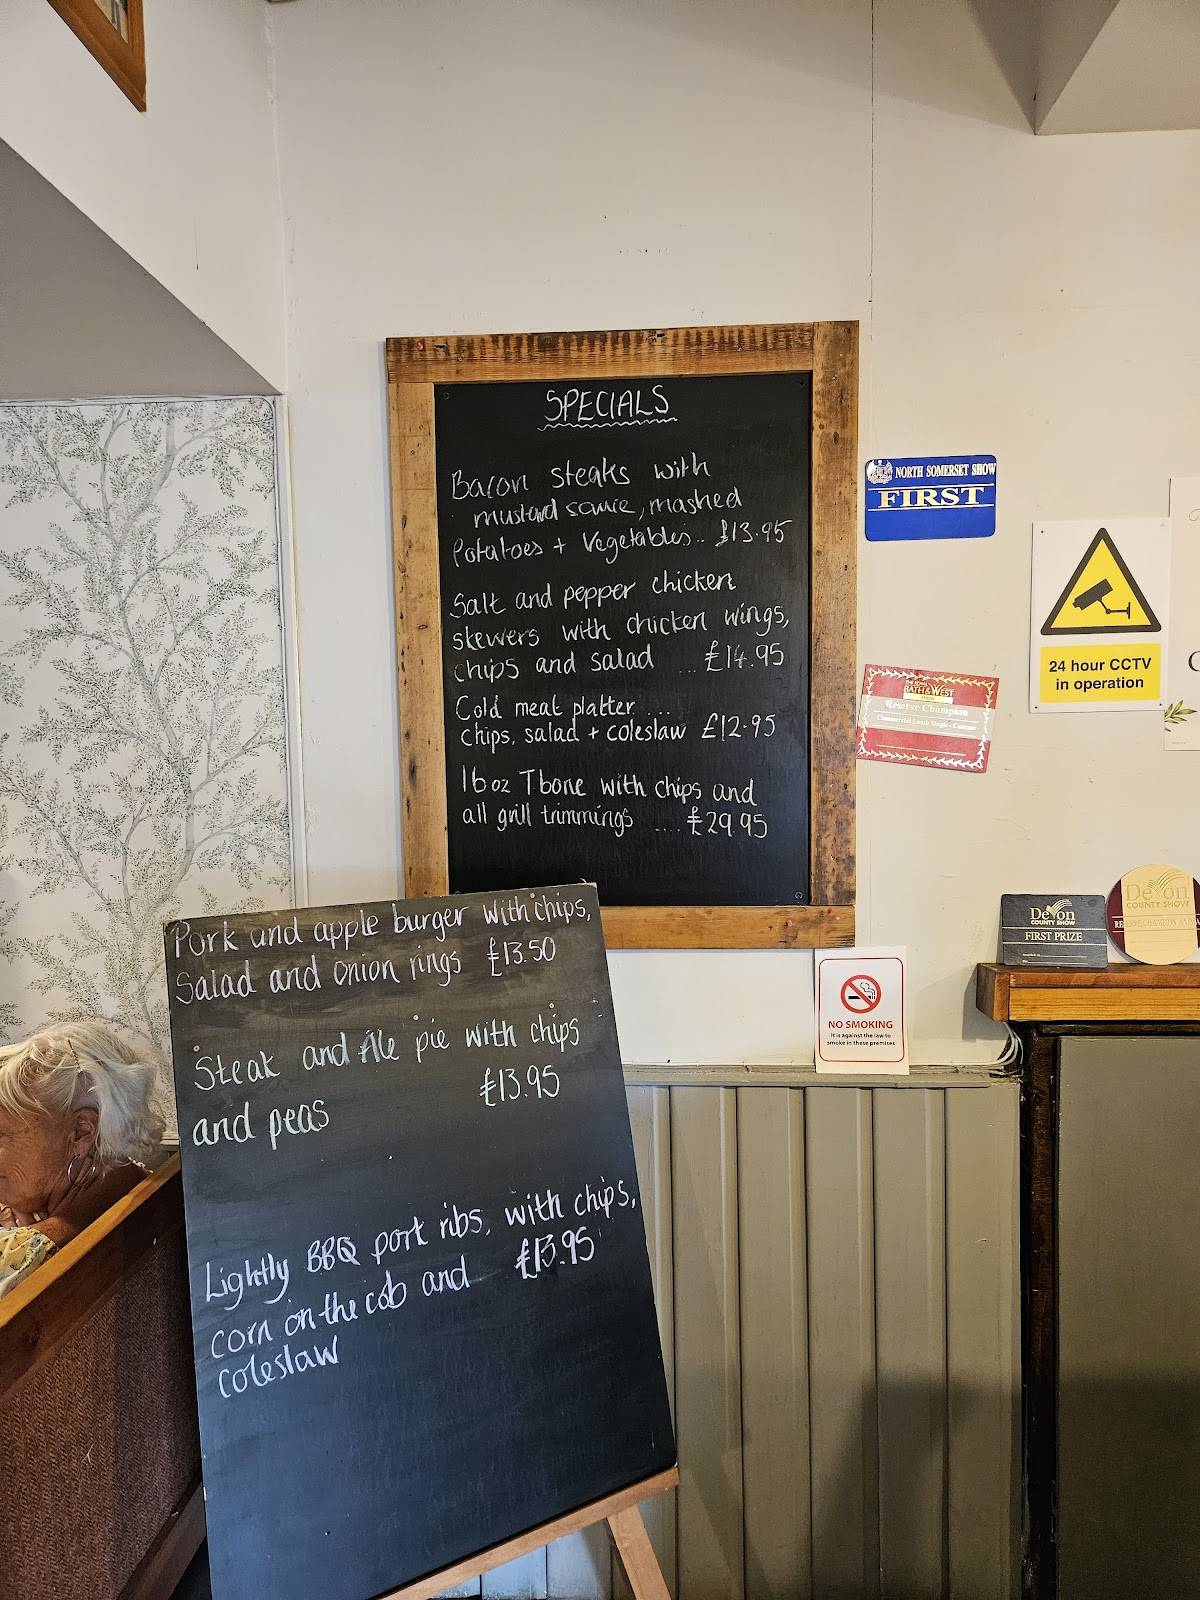 SPECIALS
Bacon steaks with
mustard sauce, mashed
Potatoes + Vegetables.. £13.95
Salt and pepper chicken
skewers with chicken wings,
chips and salad ... £14.95
Cold meat platter ...
chips, salad + coleslaw £12.95
16oz Tbone with chips and
all grill trimmings .... £29.95
Pork and apple burger with chips,
Salad and onion rings £13.50
Steak and Ale pie with chips
and peas £13.95
Lightly BBQ pork ribs, with chips,
corn on the cob and £13.95
coleslaw
NORTH SOMERSET SHOW
FIRST
24 hour CCTV
in operation
THE ROYAL
BATH & WEST
SHOW
Reserve Champion
NO SMOKING
It is against the law to
smoke in these premises
Devon
COUNTY SHOW
FIRST PRIZE
Devon
COUNTY SHOW